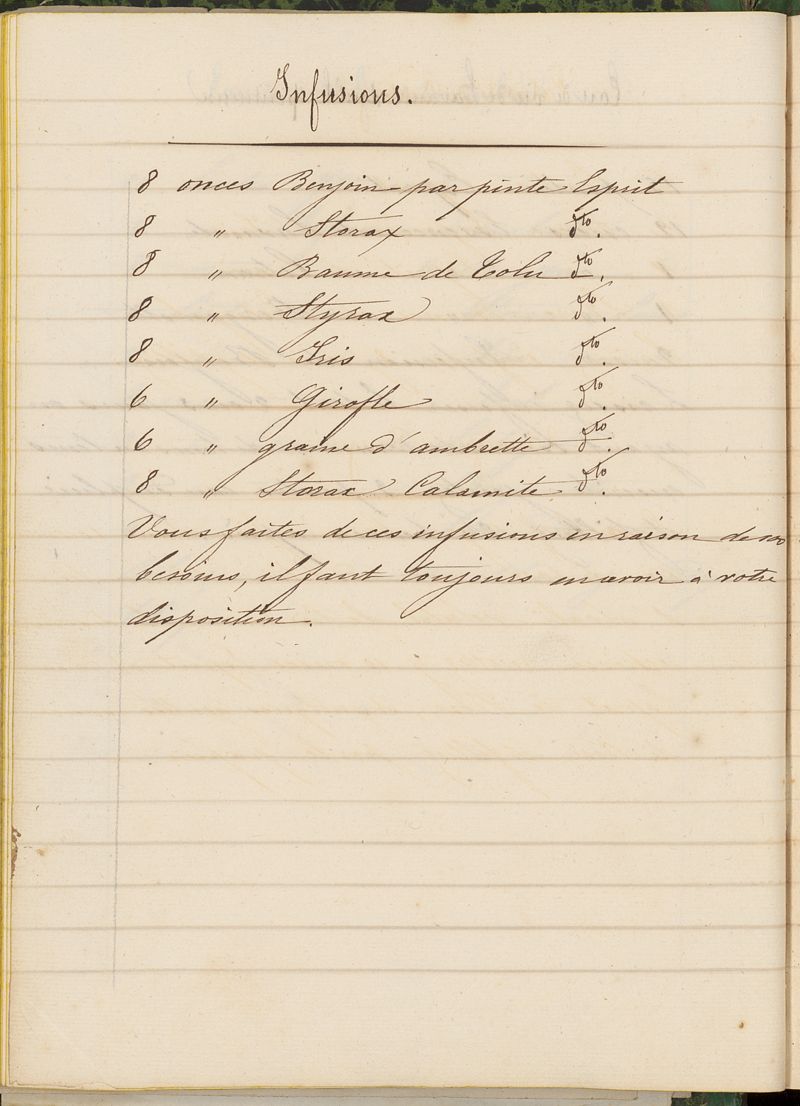 Infusions.
8 onces Benjoin par pinte Esprit
8 " Storax dto.
8 " Baume de Tolu dto.
8 " Styrax dto.
8 " Iris dto.
6 " Girofle dto.
6 " graine d'ambrette dto.
8 " Storax Calamite dto.
Vous faites de ces infusions en raison de vos
besoins, il faut toujours en avoir à votre
disposition.